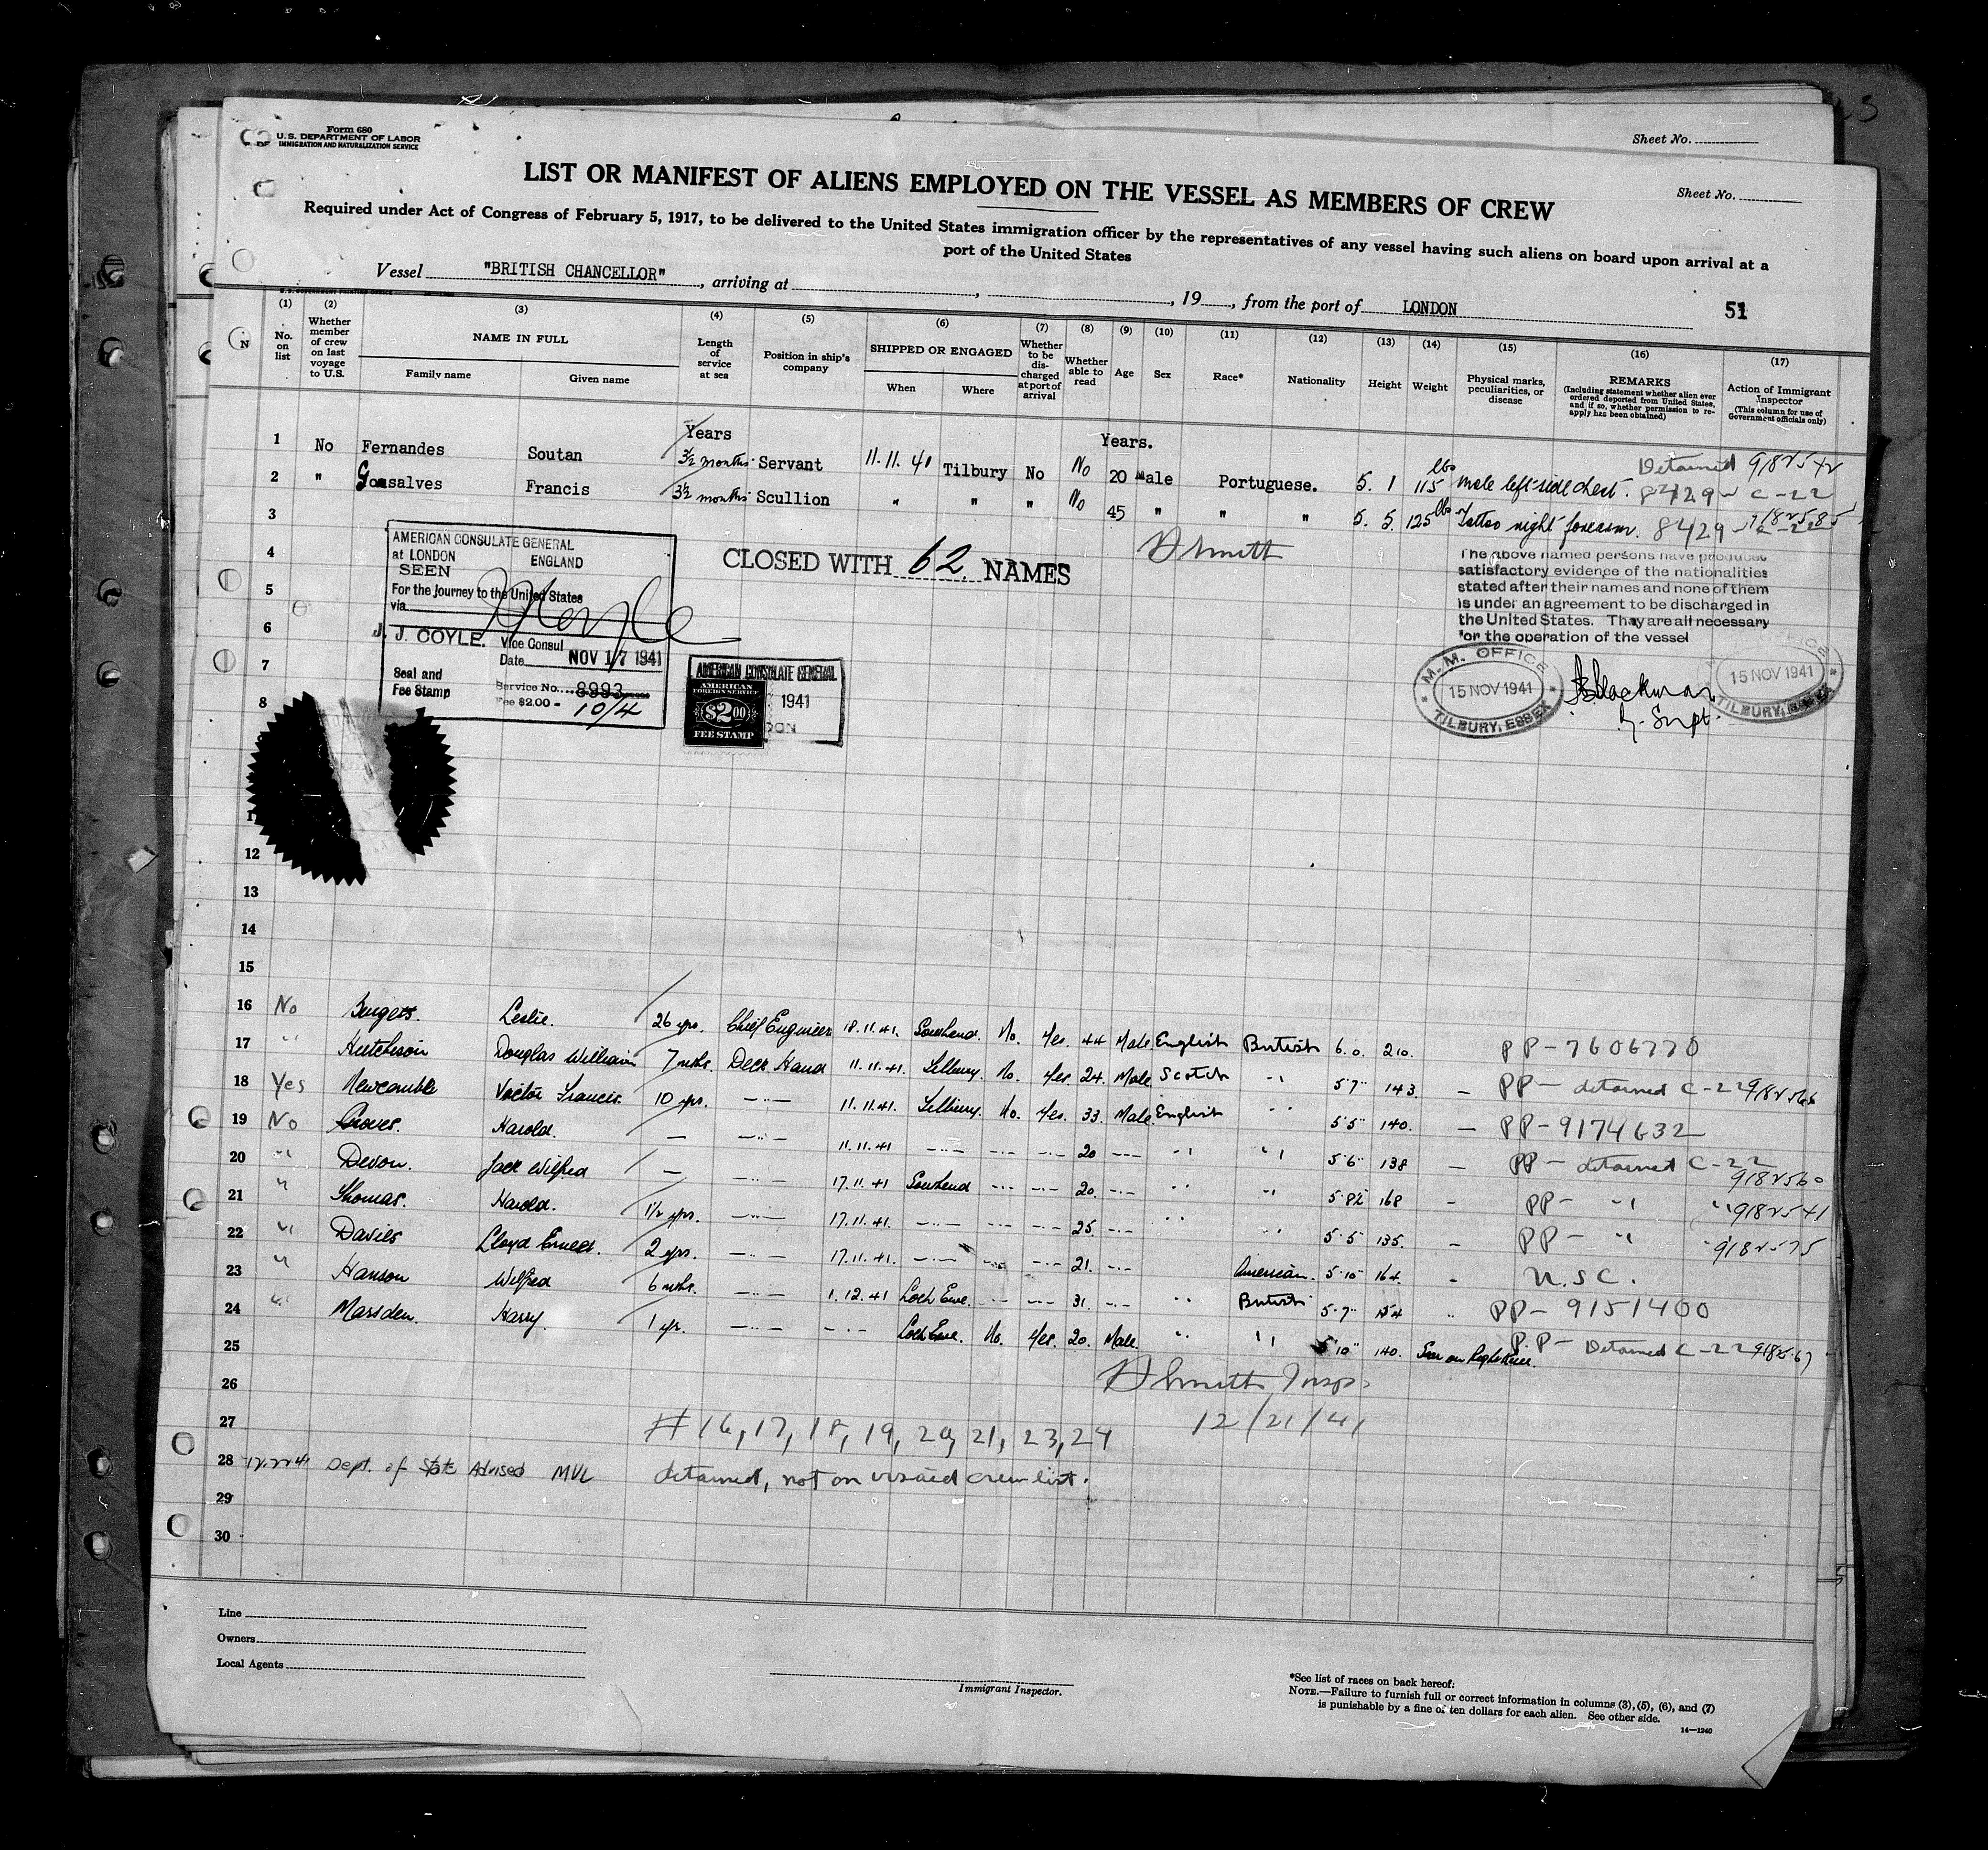 Form 680
U.S. DEPARTMENT OF LABOR
IMMIGRATION AND NATURALIZATION SERVICE
Sheet No.
Sheet No.
LIST OR MANIFEST OF ALIENS EMPLOYED ON THE VESSEL AS MEMBERS OF CREW
Required under Act of Congress of February 5, 1917, to be delivered to the United States immigration officer by the representatives of any vessel having such aliens on board upon arrival at a
port of the United States
Vessel "BRITISH CHANCELLOR", arriving at , , 19 , from the port of LONDON 51
(1) (2) (3) (4) (5) (6) (7) (8) (9) (10) (11) (12) (13) (14) (15) (16) (17)
No. on list
Whether member of crew on last voyage to U.S.
NAME IN FULL
Family name Given name
Length of service at sea
Position in ship's company
SHIPPED OR ENGAGED
When Where
Whether to be discharged at port of arrival
Whether able to read
Age Sex Race* Nationality Height Weight
Physical marks, peculiarities, or disease
REMARKS
(Including statement whether alien ever ordered deported from United States, and if so, whether permission to re-apply has been obtained)
Action of Immigrant Inspector
(This column for use of Government officials only)
Years Years. lbs
1 No Fernandes Soutan 3½ months Servant 11.11.41 Tilbury No No 20 Male Portuguese. 5. 1 115 mole left side chest. Detained 9182542
8429 C-22
2 " Gonsalves Francis 3½ months Scullion " " " No 45 " " " 5. 5. 125 lbs Tattoo right forearm. 8429 C-22 9182585
3
4
5
6
7
8
AMERICAN CONSULATE GENERAL
at LONDON ENGLAND
SEEN
For the journey to the United States
via
J. J. COYLE. Vice Consul
Date NOV 17 1941
Seal and Fee Stamp
Service No. 8993
Fee $2.00 = 10/4
CLOSED WITH 62 NAMES
AMERICAN CONSULATE GENERAL
1941
AMERICAN
FOREIGN SERVICE
$2.00
FEE STAMP
The above named persons have produced
satisfactory evidence of the nationalities
stated after their names and none of them
is under an agreement to be discharged in
the United States. They are all necessary
for the operation of the vessel
M. M. OFFICE
15 NOV 1941
TILBURY, ESSEX
15 NOV 1941
TILBURY, ESSEX
12
13
14
15
16 No Burgess. Leslie. 26 yrs. Chief Engineer 18.11.41. Southend No. Yes. 44 Male English British 6.0. 210. PP-7606770
17 " Hutcheson Douglas William 7 mths. Deck Hand 11.11.41. Tilbury. No. Yes. 24. Male Scotch " 5'7" 143. — PP — detained C-22 9182566
18 Yes Newcombe Victor Francis. 10 yrs. —"— 11.11.41. Tilbury. No. Yes. 33. Male English " 5'5" 140. — PP-9174632
19 No Groves. Harold. — —"— 11.11.41 —"— —"— —"— 20 —"— " " 5'6" 138 — PP — detained C-22 9182560
20 " Devon. Jack Wilfred — —"— 17.11.41 Southend —"— —"— 20. —"— " " 5'8½ 168 - PP- " " 9182541
21 " Thomas. Harold. 1½ yrs. —"— 17.11.41. —"— —"— —"— 25. —"— " " 5'5" 135. - PP- " " 9182575
22 " Davies Lloyd Ernest. 2 yrs. —"— 17.11.41. —"— —"— 21. —"— American. 5'10" 164. - U.S.C.
23 " Hanson Wilfred 6 mths. —"— 1.12.41 Loch Ewe. —"— —"— 31. —"— " British 5'7" 154 " PP-9151400
24 " Marsden. Harry. 1 yr. —"— —"— Loch Ewe. No. Yes. 20. Male. " " 5'10" 140. Scar on Right Knee. P.P - Detained C-22 9182567
25
26
27 #16, 17, 18, 19, 20, 21, 23, 24 12/21/41
28 12.22.41 Dept. of State Advised MVL detained, not on visaed crew list.
29
30
Line
Owners
Local Agents
Immigrant Inspector.
*See list of races on back hereof.
NOTE.—Failure to furnish full or correct information in columns (3), (5), (6), and (7)
is punishable by a fine of ten dollars for each alien. See other side.
14—1240